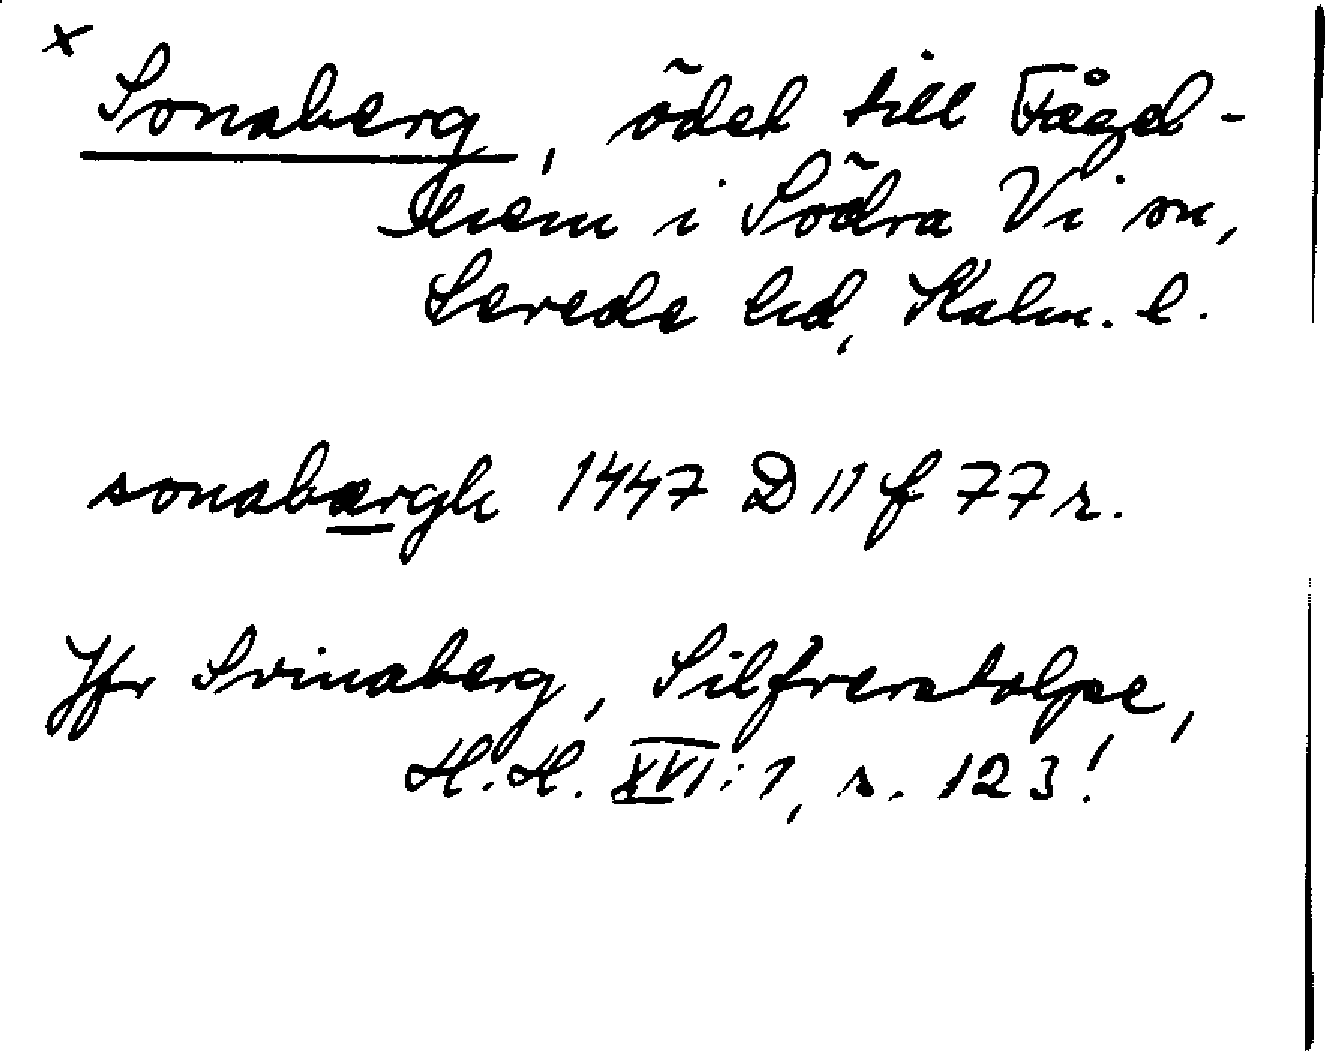 x
Sonaberg, ödet till Fågel-
hem i Södra Vi sn,
Sevede hd, Kalm. l.
sonabærgh 1447 D 11 f 77 r.
Jfr Svinaberg, Silfverstolpe,
H.H. XVI:1, s. 123!